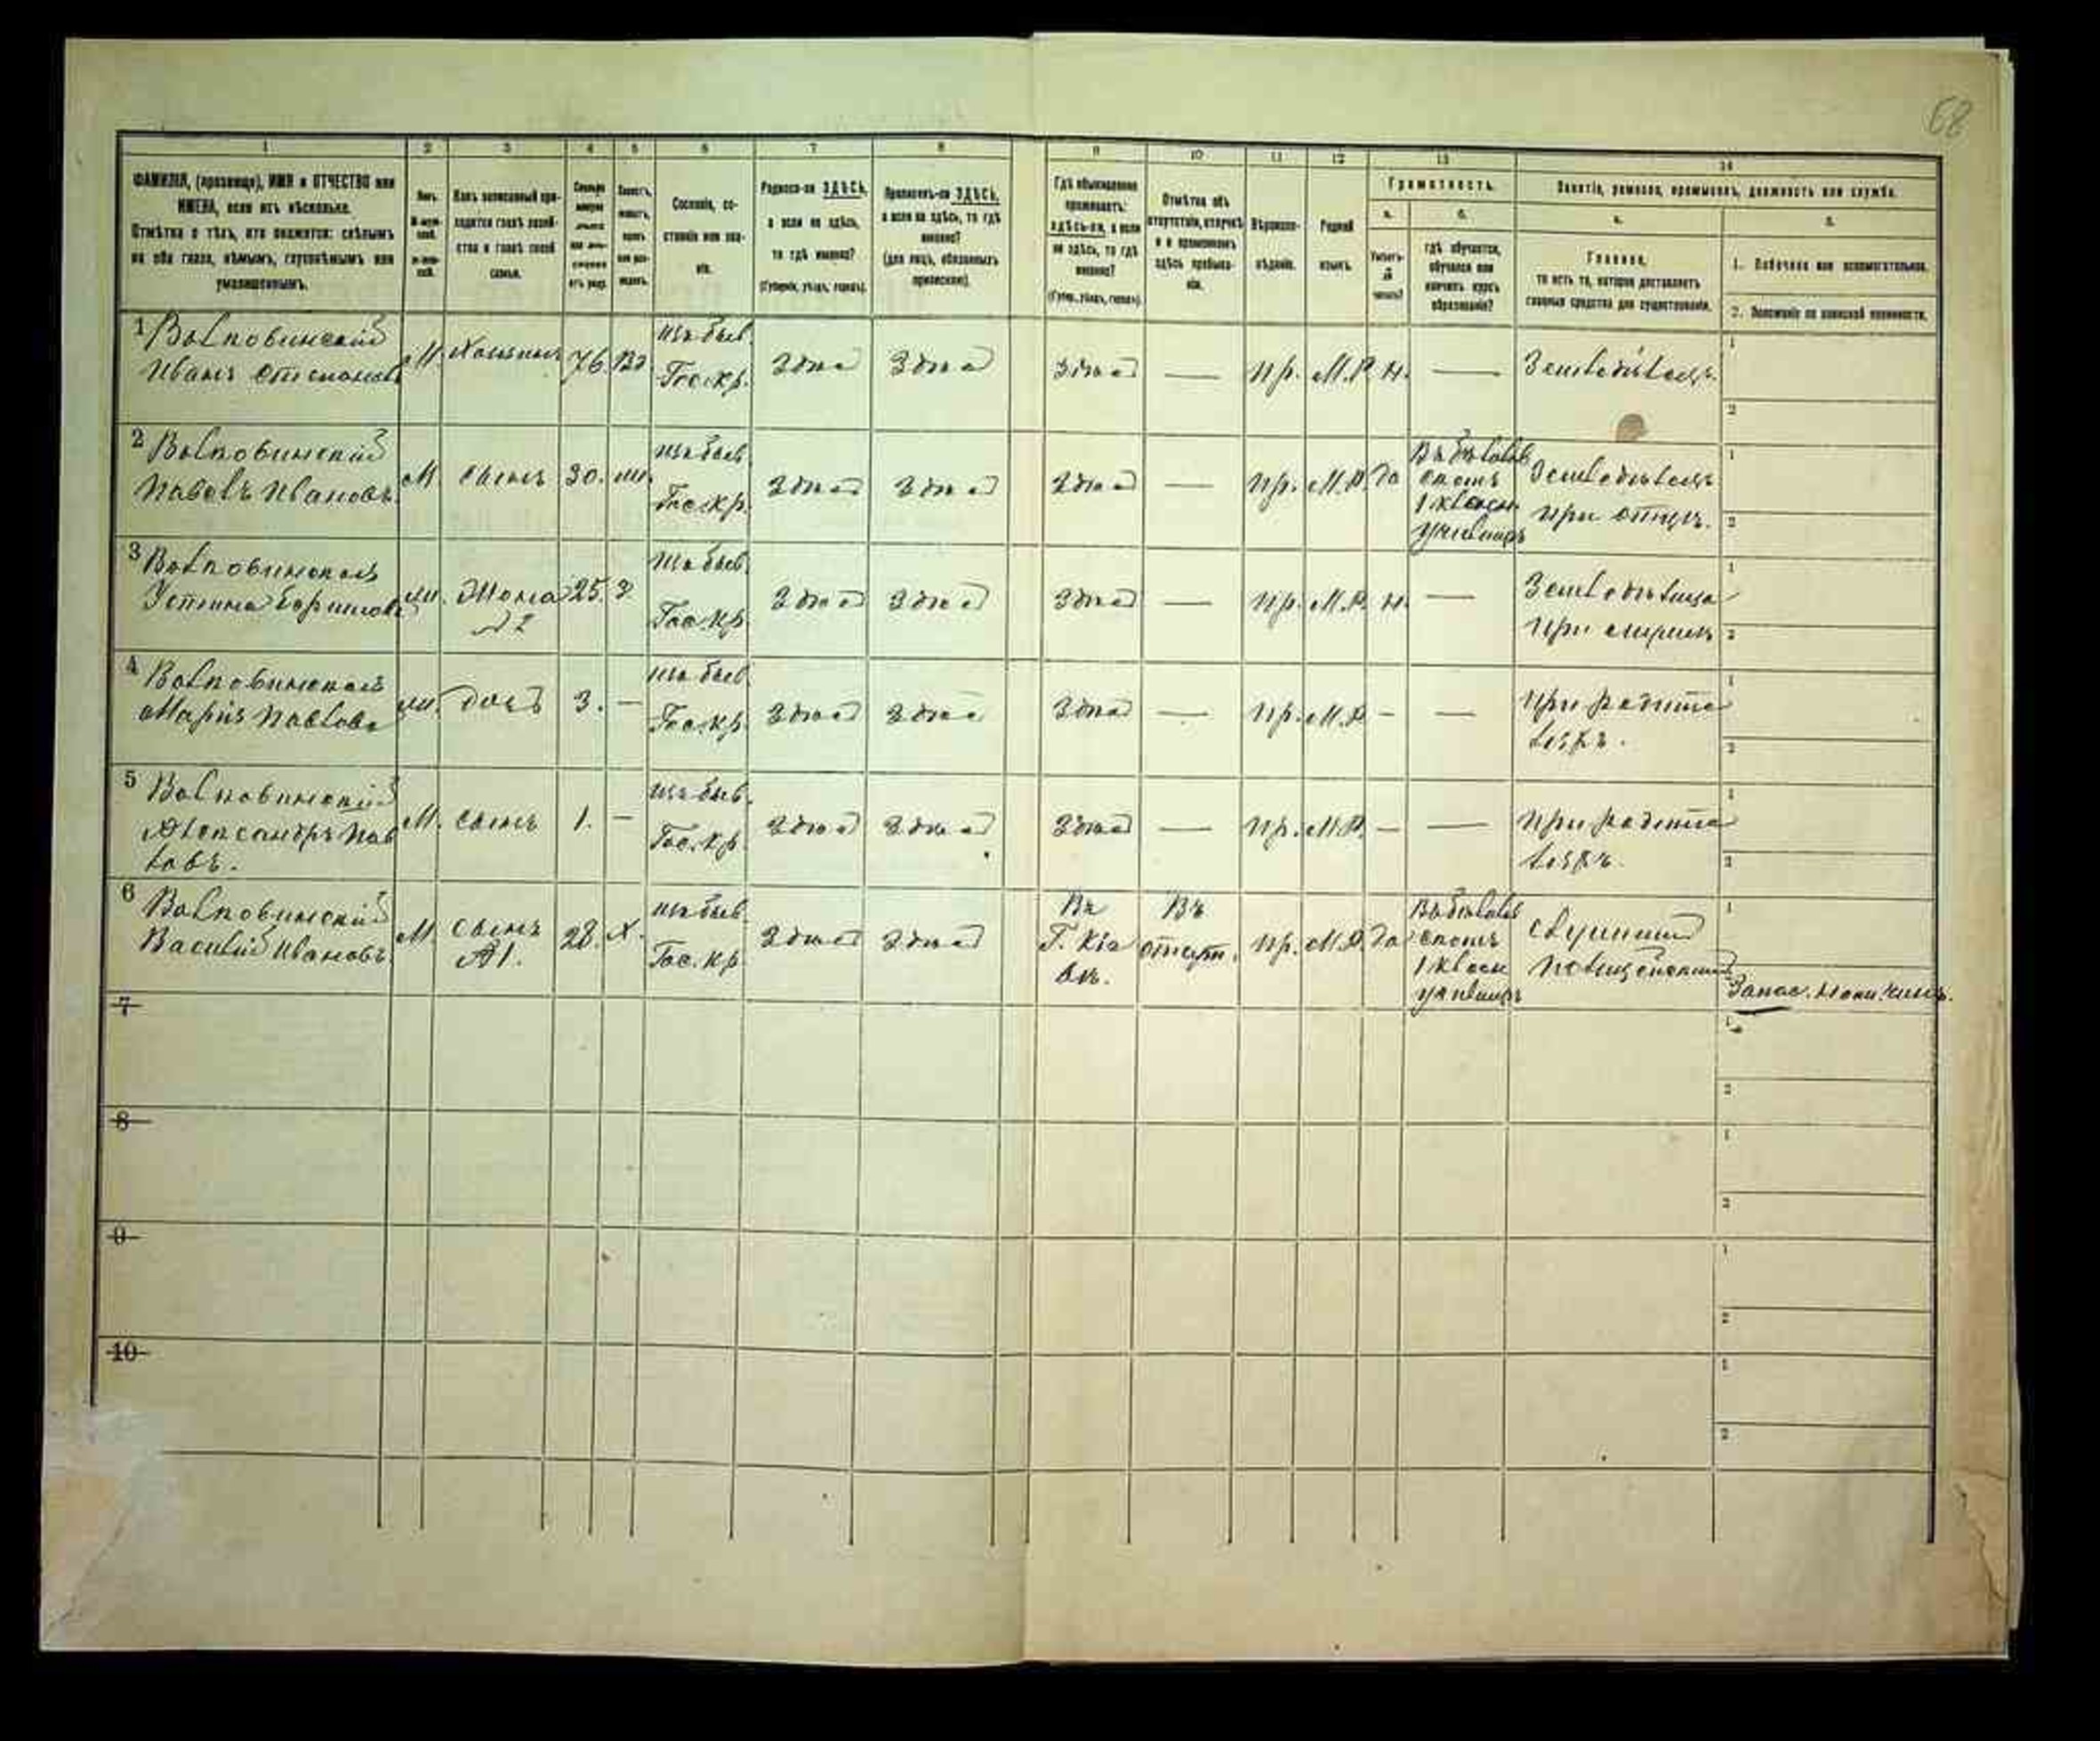 68
1 2 3 4 5 6 7 8 9 10 11 12 13 14
ФАМИЛІЯ, (прозвище), ИМЯ и ОТЧЕСТВО или
ИМЕНА, если ихъ нѣсколько.
Отмѣтка о тѣхъ, кто окажется: слѣпымъ
на оба глаза, нѣмымъ, глухонѣмымъ или
умалишеннымъ.
Полъ.
Какъ записанный при-
ходится главѣ хозяй-
ства и главѣ своей
семьи.
Сословіе, со-
стояніе или зва-
ніе.
Родился-ли ЗДѢСЬ,
а если не здѣсь,
то гдѣ именно?
(Губернія, уѣздъ, городъ).
Приписанъ-ли ЗДѢСЬ,
а если не здѣсь, то гдѣ
именно?
(для лицъ, обязанныхъ
припискою).
Гдѣ обыкновенно
проживаетъ:
здѣсь-ли, а если
не здѣсь, то гдѣ
именно?
(Губер., уѣздъ, городъ).
Отмѣтка объ
отсутствіи, отлучкѣ
и о временномъ
здѣсь пребыва-
ніи.
Вѣроиспо-
вѣданіе.
Родной
языкъ.
Грамотность.
а.
Умѣетъ-
ли
читать?
б.
гдѣ обучается,
обучался или
кончилъ курсъ
образованія?
Занятіе, ремесло, промыселъ, должность или служба.
а.
Главное,
то есть то, которое доставляетъ
главныя средства для существованія.
б.
1. Побочное или вспомогательное.
2. Положеніе по воинской повинности.
1 Волковинскій
Иванъ Степановъ
М. Хозяинъ 76. Вд
изъ быв.
Гос.кр.
здѣсь здѣсь здѣсь — пр. М.Р. н. — Земледѣлецъ.
1
2
2 Волковинскій
Павелъ Ивановъ
М. сынъ 30. ж.
изъ быв.
Гос.кр.
здѣсь здѣсь здѣсь — пр. М.Р. да
1 класн.
училищѣ
Земледѣлецъ
при отцѣ.
1
2
3 Волковинская
Устина
ж. Жена
№2
25. З
изъ быв.
Гос.кр.
здѣсь здѣсь здѣсь — пр. М.Р. н. —
Земледѣлица
при
1
2
4 Волковинская
Марія Павлова
ж. дочь 3. —
изъ быв.
Гос.кр.
здѣсь здѣсь здѣсь — пр. М.Р. — —
при родите
ляхъ.
1
2
5 Волковинскій
Александръ Пав
ловъ.
М. сынъ 1. —
изъ быв.
Гос.кр.
здѣсь здѣсь здѣсь — пр. М.Р. — —
при родите
ляхъ.
1
2
6 Волковинскій
Василій Ивановъ.
М. сынъ
№1.
28. Х.
изъ быв.
Гос.кр.
здѣсь здѣсь
Въ
Г. Кіе
вѣ.
Въ
отсут.
пр. М.Р. да
1 класн
училищѣ
Служитъ
полицейскимъ
1
Запас. нижн. чинъ.
7
1
2
8
1
2
9
1
2
10
1
2